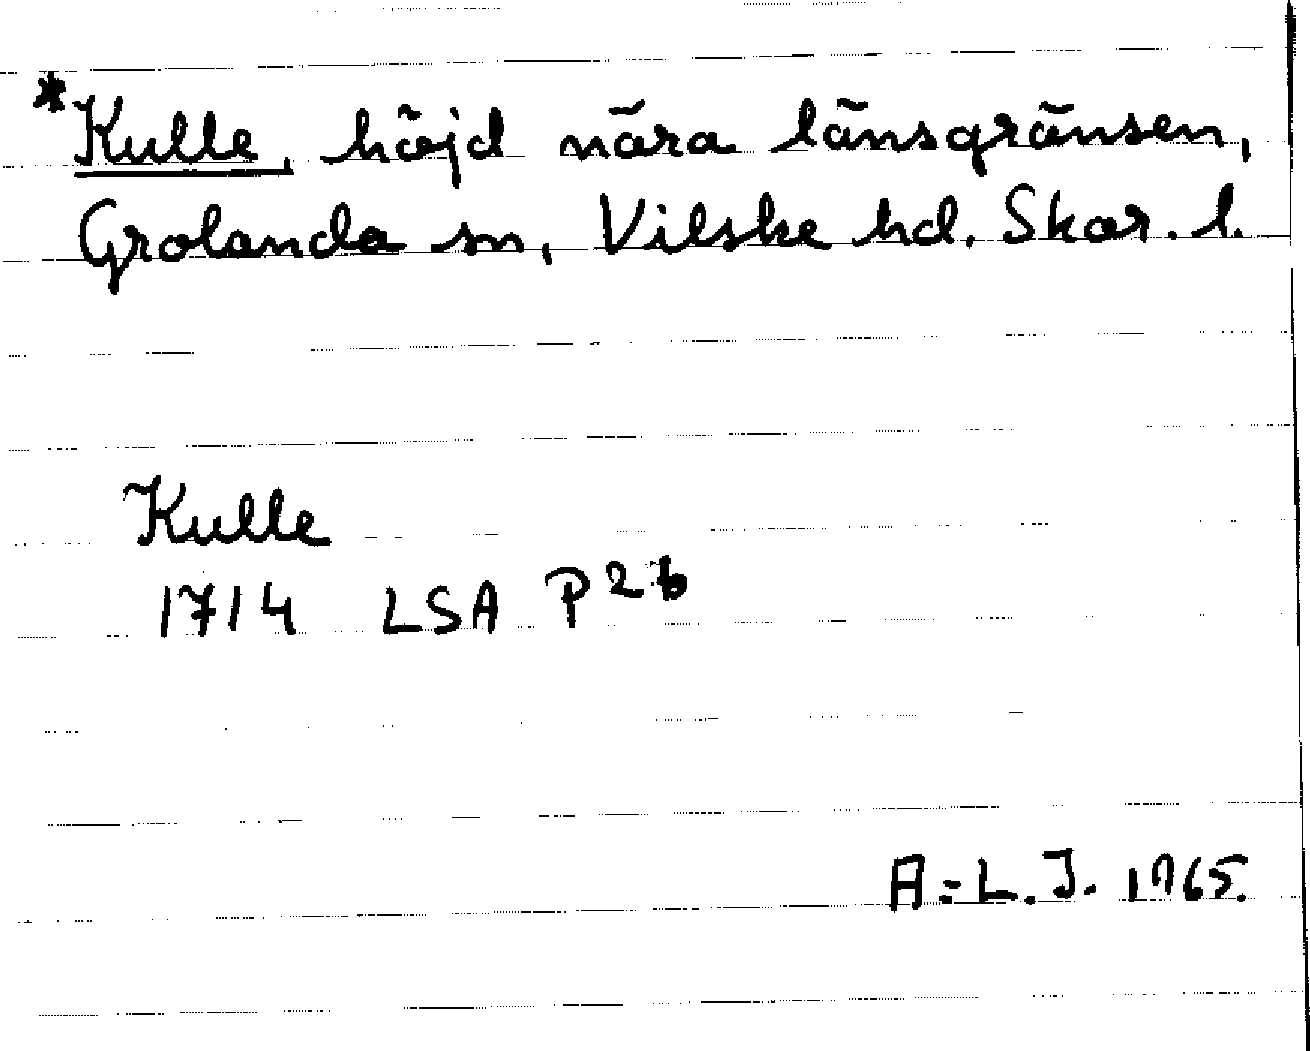 *Kulle, höjd nära länsgränsen,
Grolanda sn, Vilske hd. Skar. l.
Kulle
1714 LSA P 26
A-L.J. 1965.